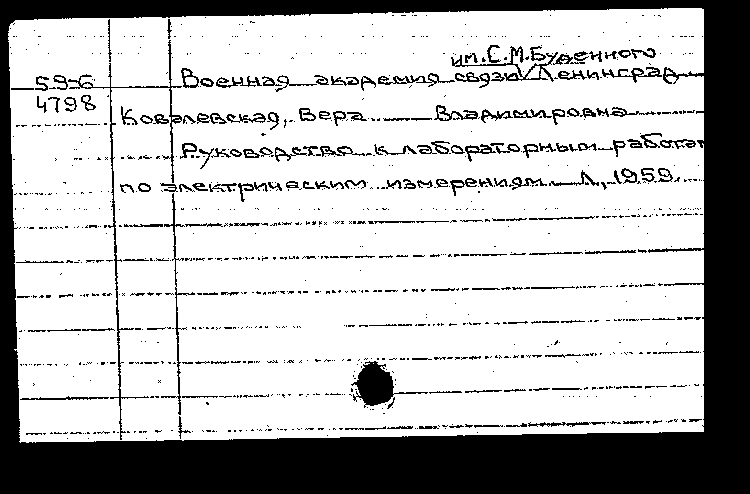 им. С.М.Буденного
59-6 Военная академия связи/Ленинград
4798
Ковалевская, Вера Владимировна
Руководство к лабораторным работам
по электрическим измерениям. Л., 1959.